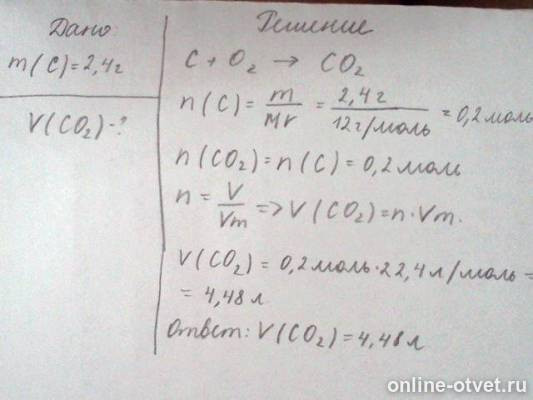 Дано:
m(C)=2,4г
V(CO₂)-?
Решение
C + O₂ → CO₂
n(C) = m/Mr = 2,4г/12г/моль = 0,2моль
n(CO₂)=n(C)=0,2моль
n = V/Vm => V(CO₂)=n·Vm.
V(CO₂)=0,2моль·22,4л/моль=
= 4,48л
Ответ: V(CO₂)=4,48л
online-otvet.ru